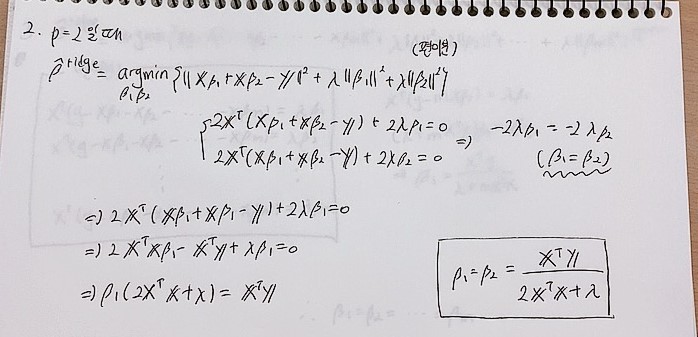 2. p=2 일 때
(편미분)
β̂^ridge = argmin_{β₁β₂} {‖𝕏β₁+𝕏β₂−𝕐‖²+λ‖β₁‖²+λ‖β₂‖²}
{2𝕏ᵀ(𝕏β₁+𝕏β₂−𝕐)+2λβ₁=0 ⇒ −2λβ₁=−2λβ₂
2𝕏ᵀ(𝕏β₁+𝕏β₂−𝕐)+2λβ₂=0 (β₁=β₂)
⇒ 2𝕏ᵀ(𝕏β₁+𝕏β₁−𝕐)+2λβ₁=0
⇒ 2𝕏ᵀ𝕏β₁−𝕏ᵀ𝕐+λβ₁=0
⇒ β₁(2𝕏ᵀ𝕏+λ)=𝕏ᵀ𝕐
β₁=β₂= 𝕏ᵀ𝕐 / 2𝕏ᵀ𝕏+λ